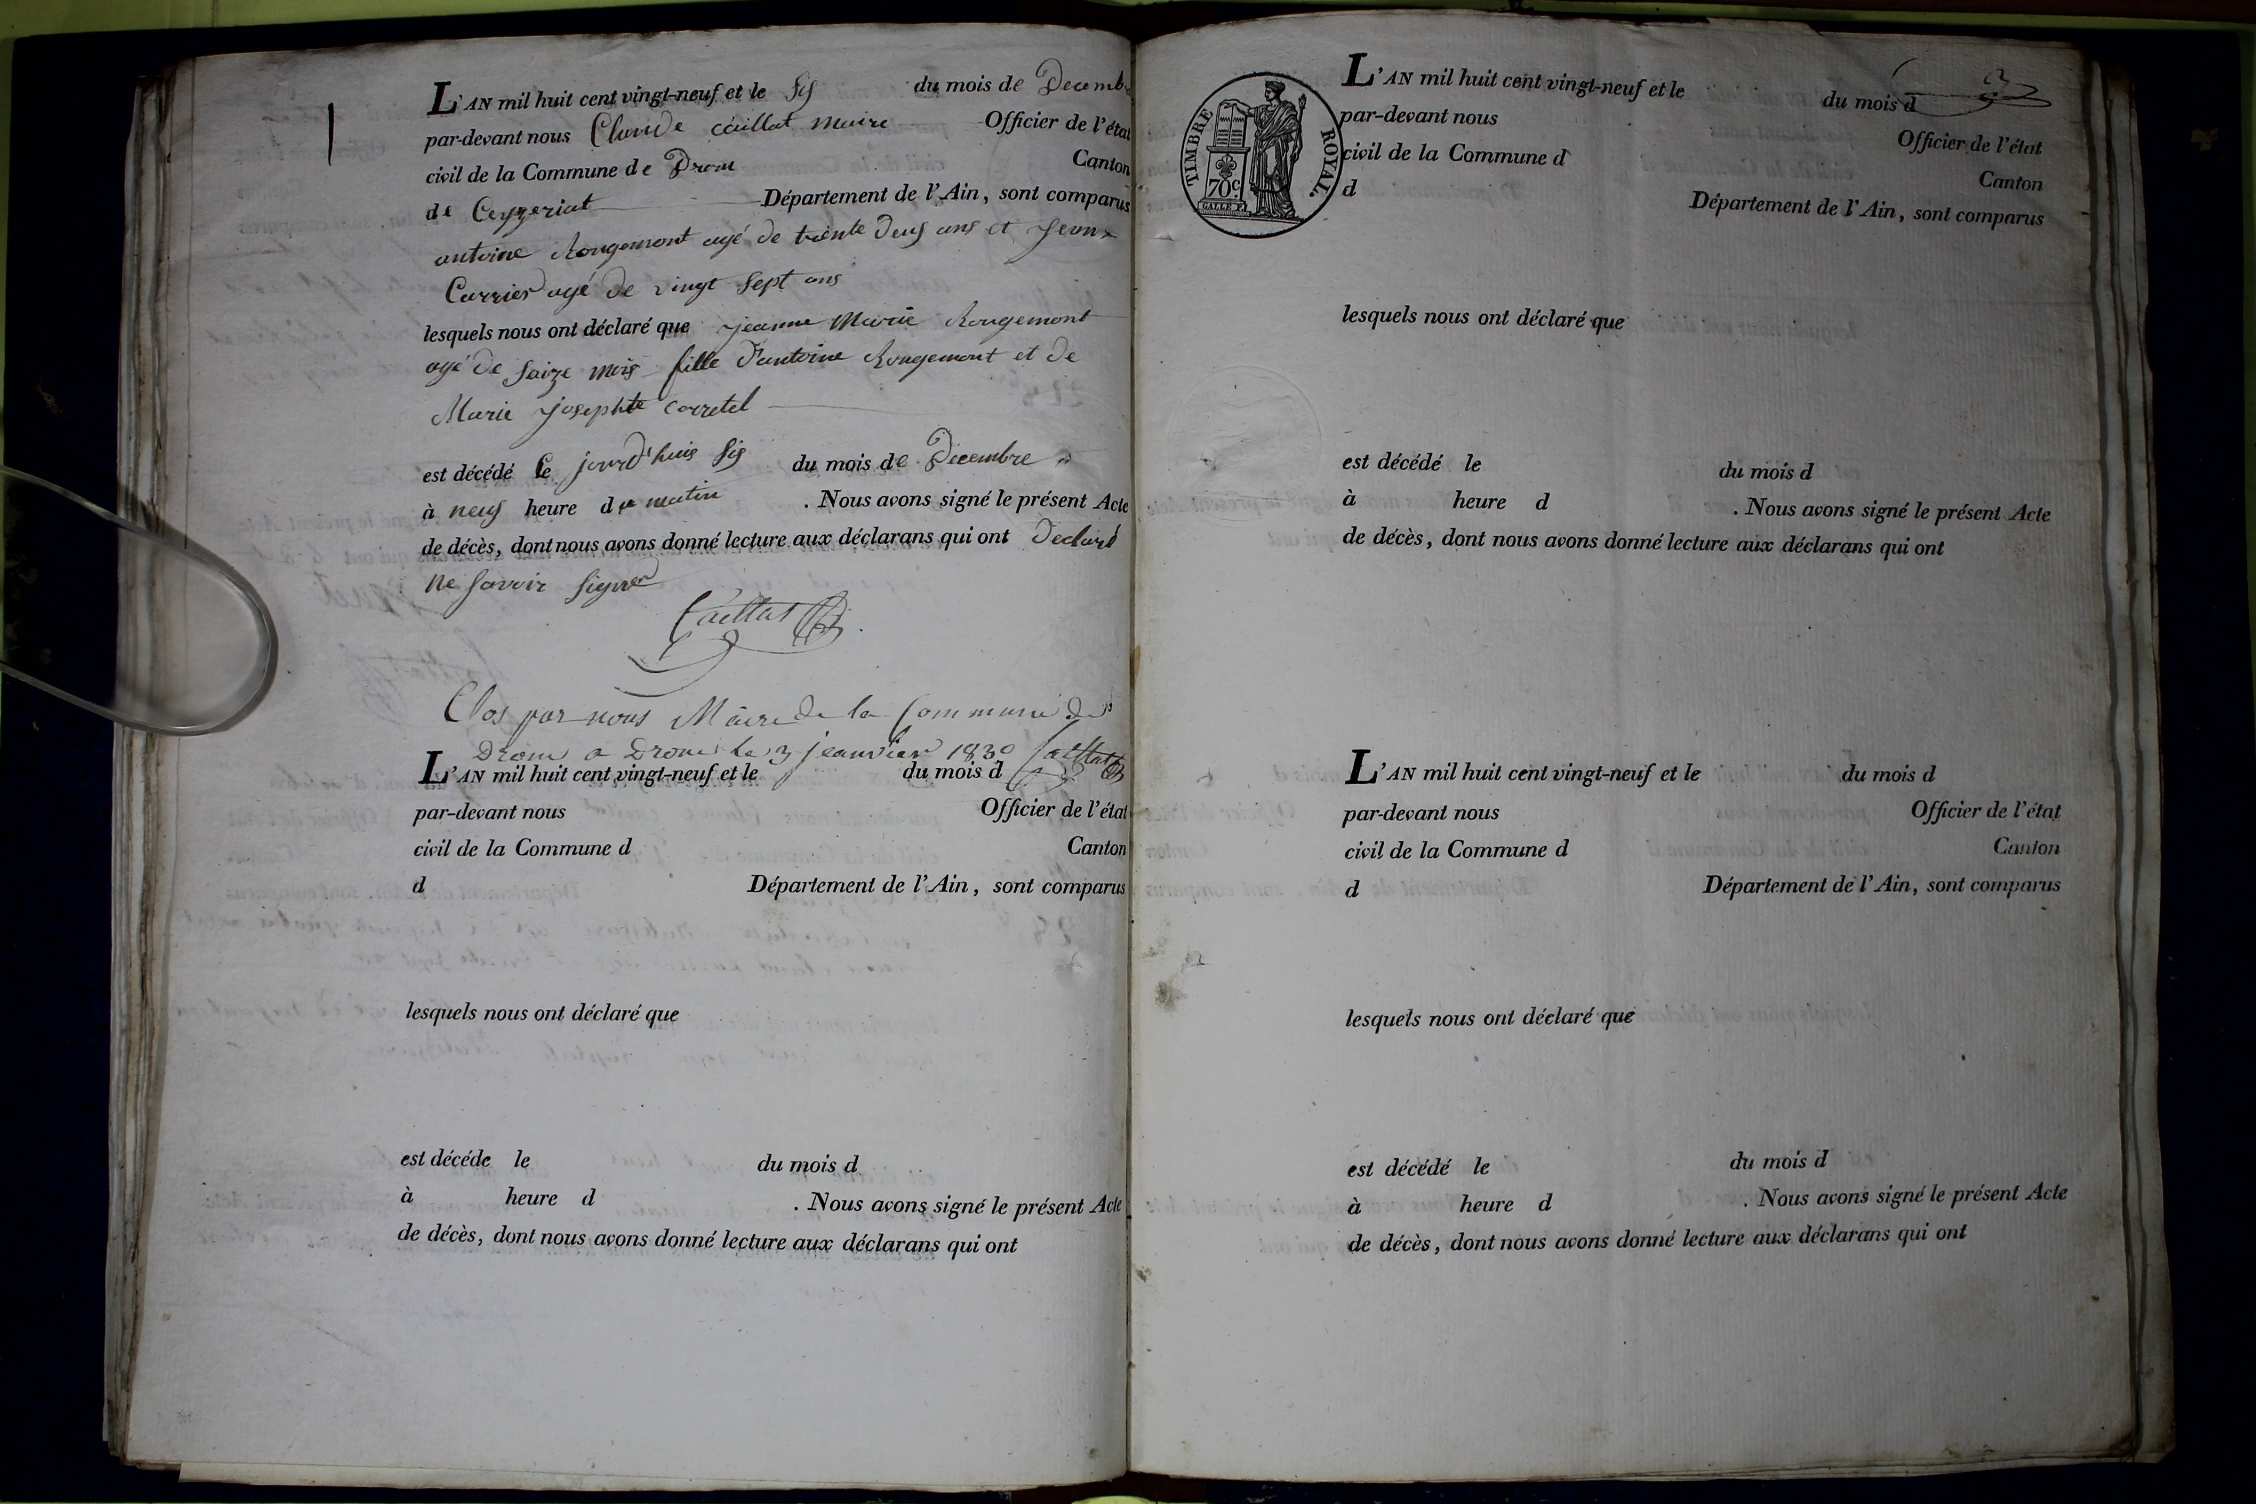 L'AN mil huit cent vingt-neuf et le Six du mois de Decemb
par-devant nous Claude Caillat maire Officier de l'état
civil de la Commune de Drom Canton
de Ceyzeriat Département de l'Ain, sont comparus
antoine Rougemont agé de trente Deux ans et
Carrier agé de vingt Sept ans
lesquels nous ont déclaré que jeanne Marie Rougemont
agé de Saize mois fille d'antoine Rougemont et de
Marie josephte Corretel
est décédé le jourd'huis Six du mois de Decembre
à neuf heure du matin . Nous avons signé le présent Acte
de décès, dont nous avons donné lecture aux déclarans qui ont Declaré
ne Savoir Signer
Caillat
Clos par nous Maire de la Commune de
Drom a Drom le 3 jeanvier 1830 Caillat
L'AN mil huit cent vingt-neuf et le du mois d
par-devant nous Officier de l'état
civil de la Commune d Canton
d Département de l'Ain, sont comparus
lesquels nous ont déclaré que
est décéde le du mois d
à heure d . Nous avons signé le présent Acte
de décès, dont nous avons donné lecture aux déclarans qui ont
TIMBRE ROYAL.
70c
GALLE F.
L'AN mil huit cent vingt-neuf et le du mois d
par-devant nous Officier de l'état
civil de la Commune d Canton
d Département de l'Ain, sont comparus
lesquels nous ont déclaré que
est décédé le du mois d
à heure d . Nous avons signé le présent Acte
de décès, dont nous avons donné lecture aux déclarans qui ont
L'AN mil huit cent vingt-neuf et le du mois d
par-devant nous Officier de l'état
civil de la Commune d Canton
d Département de l'Ain, sont comparus
lesquels nous ont déclaré que
est décédé le du mois d
à heure d . Nous avons signé le présent Acte
de décès, dont nous avons donné lecture aux déclarans qui ont